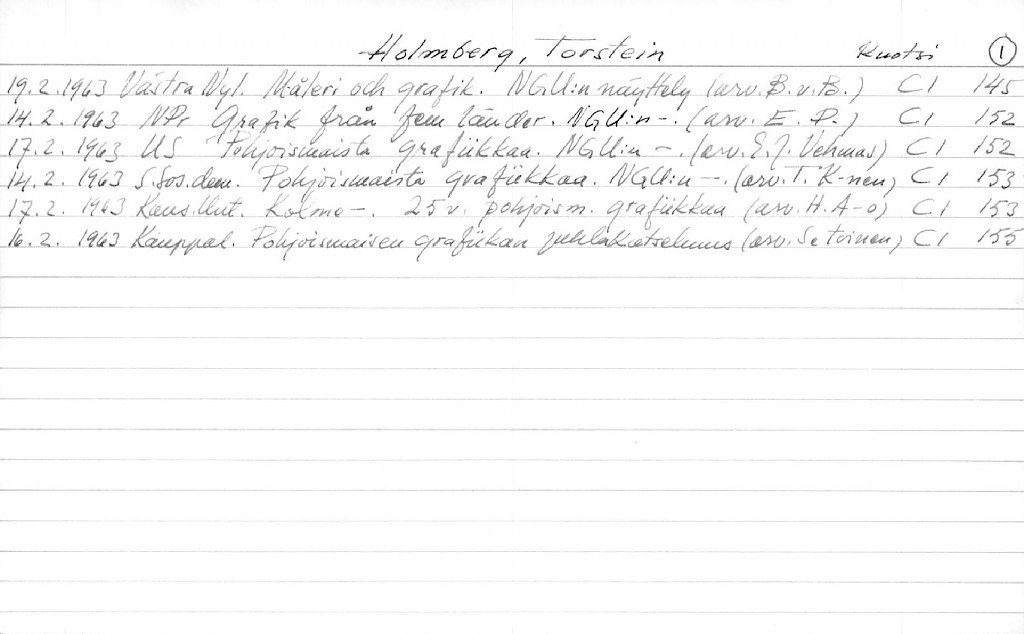 Holmberg, Torstein Ruotsi 1
19.2.1963 Västra Nyl. Måleri och grafik. NGU:n näyttely (arv. B.v.B.) C1 145
14.2.1963 NPr Grafik från fem länder. NGU:n -. (arv. E. P.) C1 152
17.2.1963 US Pohjoismaista grafiikkaa. NGU:n -. (arv. E.J. Vehmas) C1 152
14.2.1963 S.Sos.dem. Pohjoismaista grafiikkaa. NGU:n -. (arv. T. K-nen) C1 153
17.2.1963 Kans.Uut. Kolme -. 25 v. pohjoism. grafiikkaa (arv. H.A-o) C1 153
16.2.1963 Kauppal. Pohjoismaisen grafiikan juhlakatselmus (arv. Se toinen) C1 155